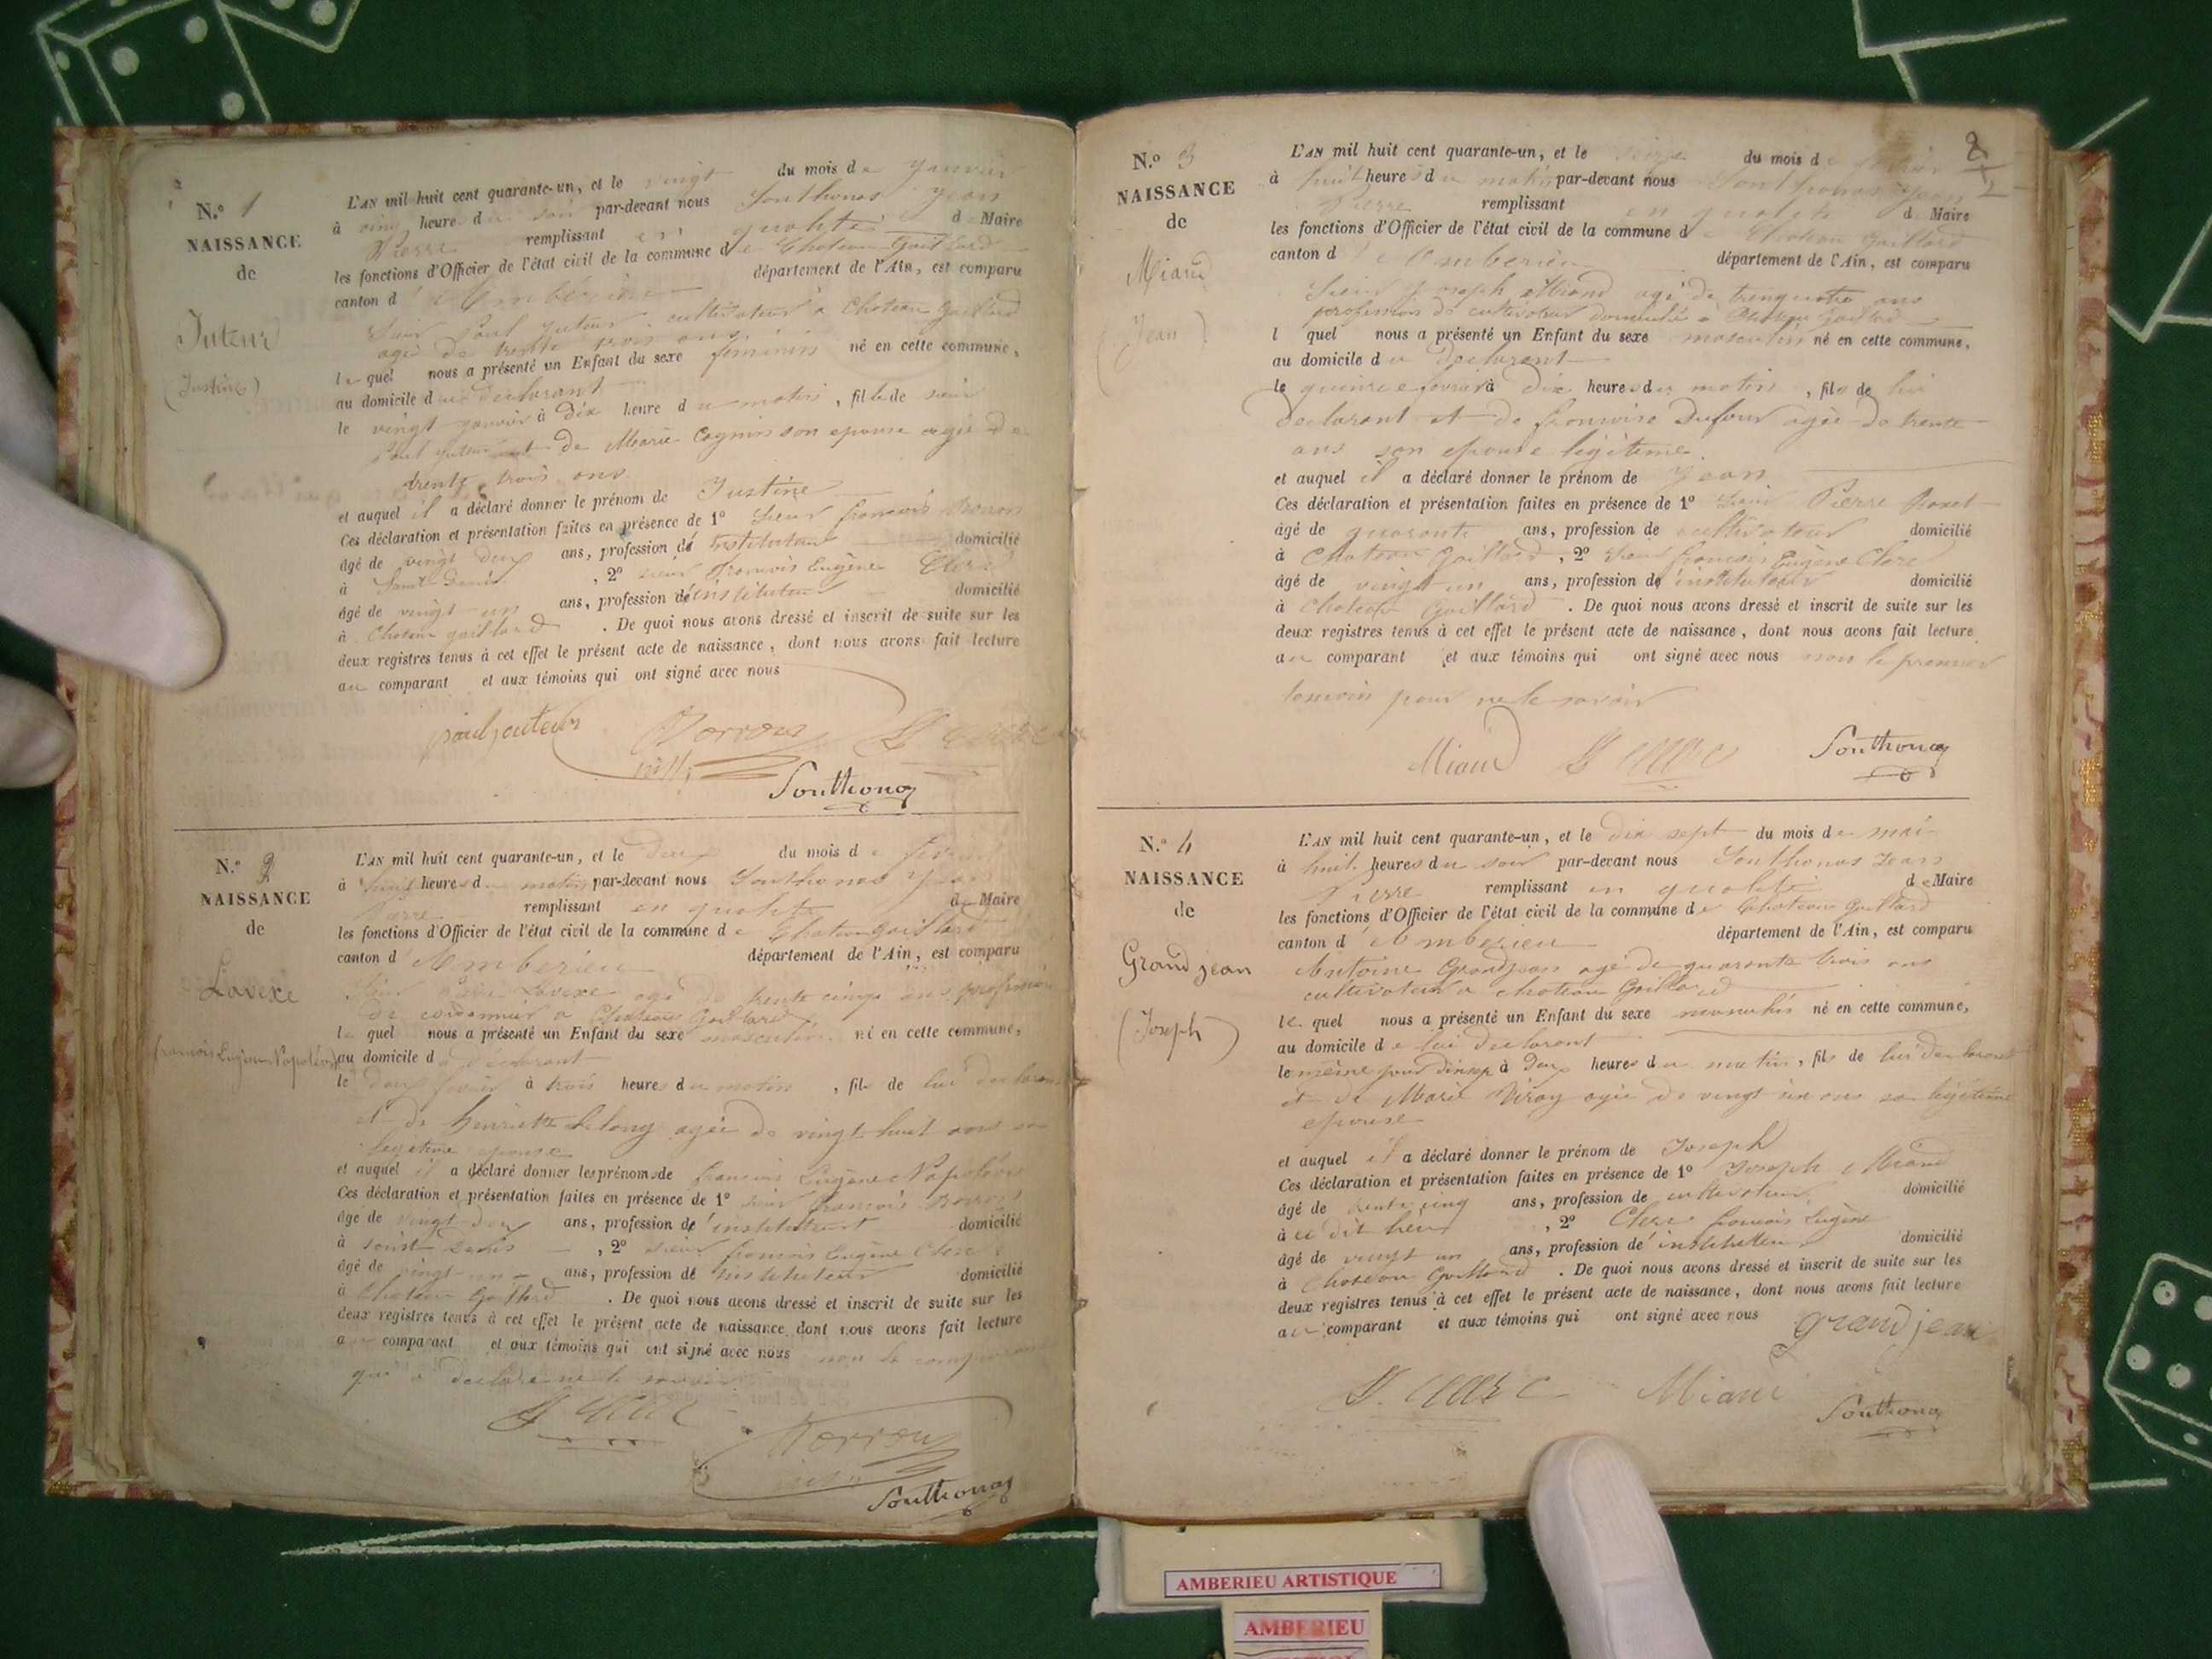 N.º 1
NAISSANCE
de
Juteur
(Justine)
L'AN mil huit cent quarante-un, et le vingt du mois de Janvier
à cinq heure du soir par-devant nous Southonas Jean
Pierre remplissant en qualité de Maire
les fonctions d'Officier de l'état civil de la commune de Chateau Gaillard
canton d'Amberieu département de l'Ain, est comparu
Sieur Paul Juteur cultivateur a Chateau Gaillard
agé de trente trois ans
le quel nous a présenté un Enfant du sexe feminin né en cette commune,
au domicile du declarant
le vingt janvier à dix heure du matin, fille de sieur
Paul Juteur et de Marie Cagnin son epouse agée de
trente trois ans
et auquel il a déclaré donner le prénom de Justine
Ces déclaration et présentation faites en présence de 1º Sieur francois
âgé de vingt deux ans, profession dé instituteur domicilié
à Saint Denis, 2º sieur francois Eugène Clerc
âgé de vingt un ans, profession dé instituteur domicilié
à Chateau gaillard. De quoi nous avons dressé et inscrit de suite sur les
deux registres tenus à cet effet le présent acte de naissance, dont nous avons fait lecture
au comparant et aux témoins qui ont signé avec nous
paul juteur
Southonas
N.º 2
NAISSANCE
de
Lavexe
francois Eugène Napoléon
L'AN mil huit cent quarante-un, et le deux du mois de fevrier
à huit heures du matin par-devant nous Southonas Jean
Pierre remplissant en qualité de Maire
les fonctions d'Officier de l'état civil de la commune de Chateau Gaillard
canton d'Amberieu département de l'Ain, est comparu
Sieur Lavexe agé de trente cinq ans profession
de cordonnier a Chateau Gaillard
le quel nous a présenté un Enfant du sexe masculin né en cette commune,
au domicile du déclarant
le deux fevrier à trois heures du matin, fils de lui declarant
et de henriette Lelong agée de vingt huit ans sa
legitime epouse
et auquel il a déclaré donner les prénoms de francois Eugène Napoléon
Ces déclaration et présentation faites en présence de 1º sieur francois
âgé de vingt deux ans, profession dé instituteur domicilié
à saint Denis, 2º sieur francois Eugène Clerc
âgé de vingt un ans, profession dé instituteur domicilié
à Chateau Gaillard. De quoi nous avons dressé et inscrit de suite sur les
deux registres tenus à cet effet le présent acte de naissance, dont nous avons fait lecture
au comparant et aux témoins qui ont signé avec nous non le comparant
qui a declaré ne le savoir
Southonas
2
N.º 3
NAISSANCE
de
Miand
(Jean)
L'AN mil huit cent quarante-un, et le seize du mois de fevrier
à huit heures du matin par-devant nous Southonas Jean
Pierre remplissant en qualité de Maire
les fonctions d'Officier de l'état civil de la commune de Chateau Gaillard
canton d'Amberieu département de l'Ain, est comparu
Sieur Joseph Miand agé de trenquatre ans
profession de cultivateur domicilié a Chateau Gaillard
l quel nous a présenté un Enfant du sexe masculin né en cette commune,
au domicile du declarant
le quinze fevrier à dix heures du matin, fils de lui
declarant et de francoise Dufour agée de trente
ans son epouse légitime
et auquel il a déclaré donner le prénom de Jean
Ces déclaration et présentation faites en présence de 1º Sieur Pierre
âgé de quarante ans, profession de cultivateur domicilié
à Chateau Gaillard, 2º sieur francois Eugène Clerc
âgé de vingt un ans, profession dé instituteur domicilié
à Chateau Gaillard. De quoi nous avons dressé et inscrit de suite sur les
deux registres tenus à cet effet le présent acte de naissance, dont nous avons fait lecture
au comparant et aux témoins qui ont signé avec nous non le premier
temoin pour ne le savoir
Miand Southonas
N.º 4
NAISSANCE
de
Grandjean
(Joseph)
L'AN mil huit cent quarante-un, et le dix sept du mois de mai
à huit heures du soir par-devant nous Southonas Jean
Pierre remplissant en qualité de Maire
les fonctions d'Officier de l'état civil de la commune de Chateau Gaillard
canton d'Amberieu département de l'Ain, est comparu
Antoine Grandjean agé de quarante trois ans
cultivateur a chateau Gaillard
le quel nous a présenté un Enfant du sexe masculin né en cette commune,
au domicile de lui declarant
le même jour à deux heures du matin, fils de lui declarant
et de Marie agée de vingt six ans sa légitime
epouse
et auquel il a déclaré donner le prénom de Joseph
Ces déclaration et présentation faites en présence de 1º Joseph Miand
âgé de trente cinq ans, profession de cultivateur domicilié
à ce dit lieu, 2º Clerc francois Eugène
âgé de vingt un ans, profession dé instituteur domicilié
à Chateau Gaillard. De quoi nous avons dressé et inscrit de suite sur les
deux registres tenus à cet effet le présent acte de naissance, dont nous avons fait lecture
au comparant et aux témoins qui ont signé avec nous grandjean
Miand
Southonas
AMBERIEU ARTISTIQUE
AMBERIEU